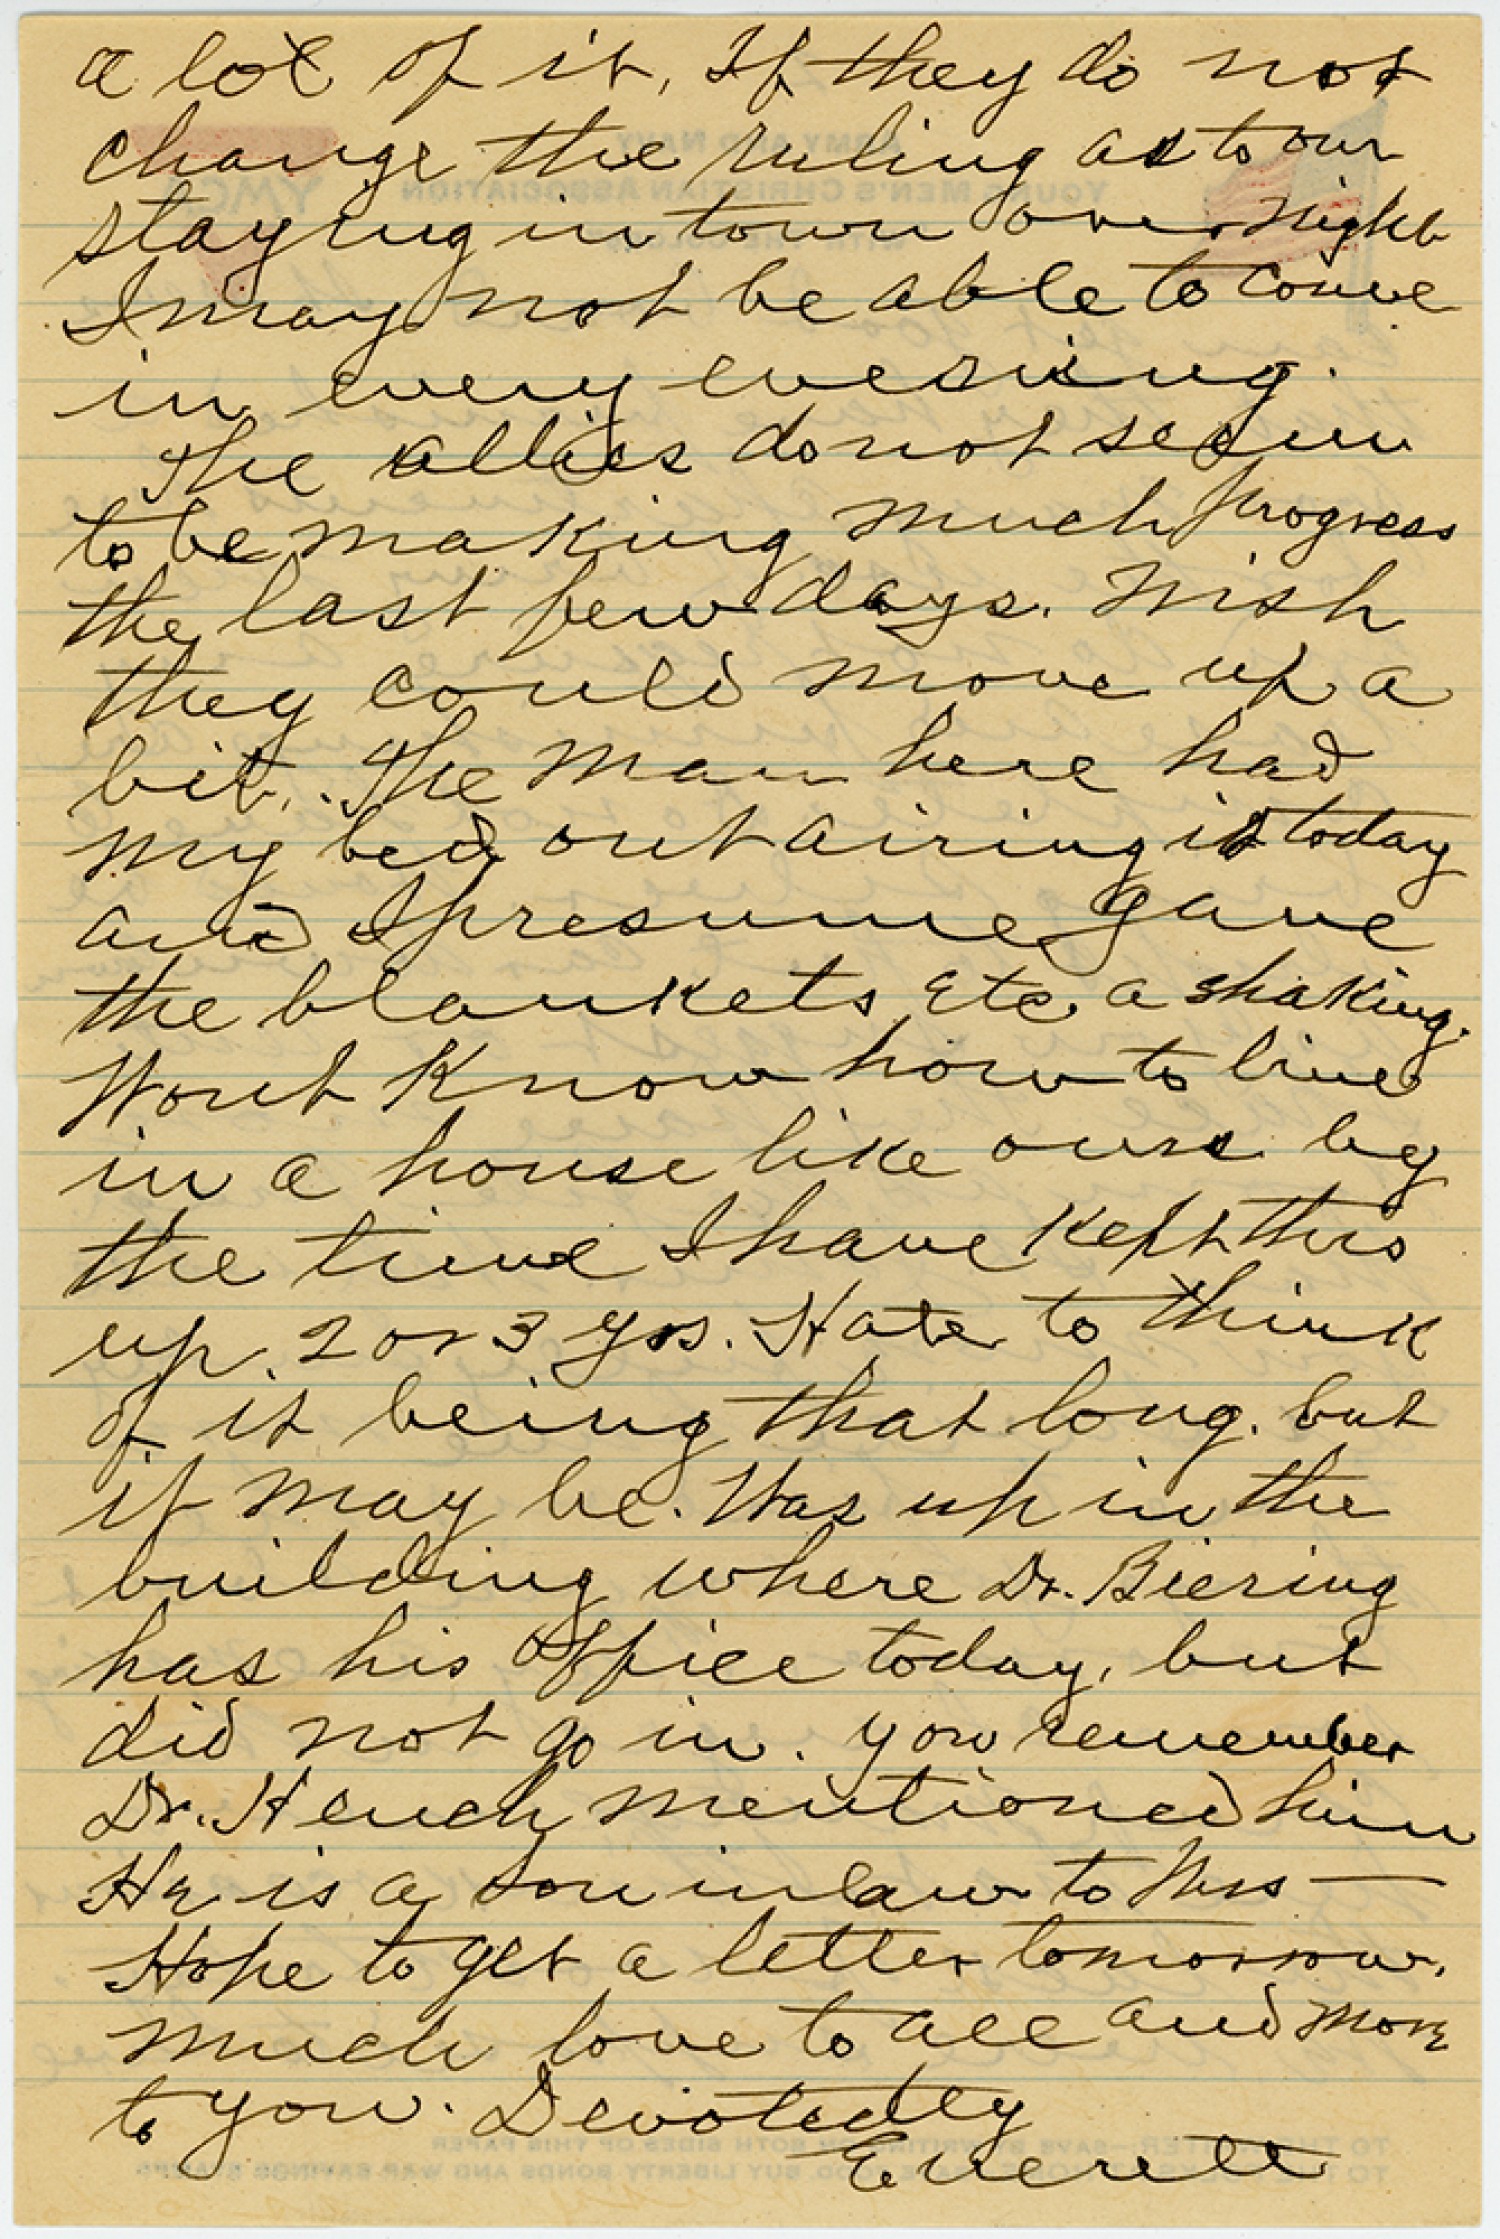 a lot of it. If they do not
change the ruling as to our
staying in town over night
I may not be able to come
in every evening.
The allies do not seem
to be making much progress
the last few days. Wish
they could move up a
bit. The man here had
my bed out airing it today
and I presume gave
the blankets etc a shaking.
Wont know how to live
in a house like ours by
the time I have kept this
up 2 or 3 yrs. Hate to think
of it being that long. but
it may be. Was up in the
building where Dr. Biering
has his office today, but
did not go in. You remember
Dr. Hench mentioned him
He is a son in law to Mrs —
Hope to get a letter tomorrow.
Much love to all and more
to you. Devotedly
Everett